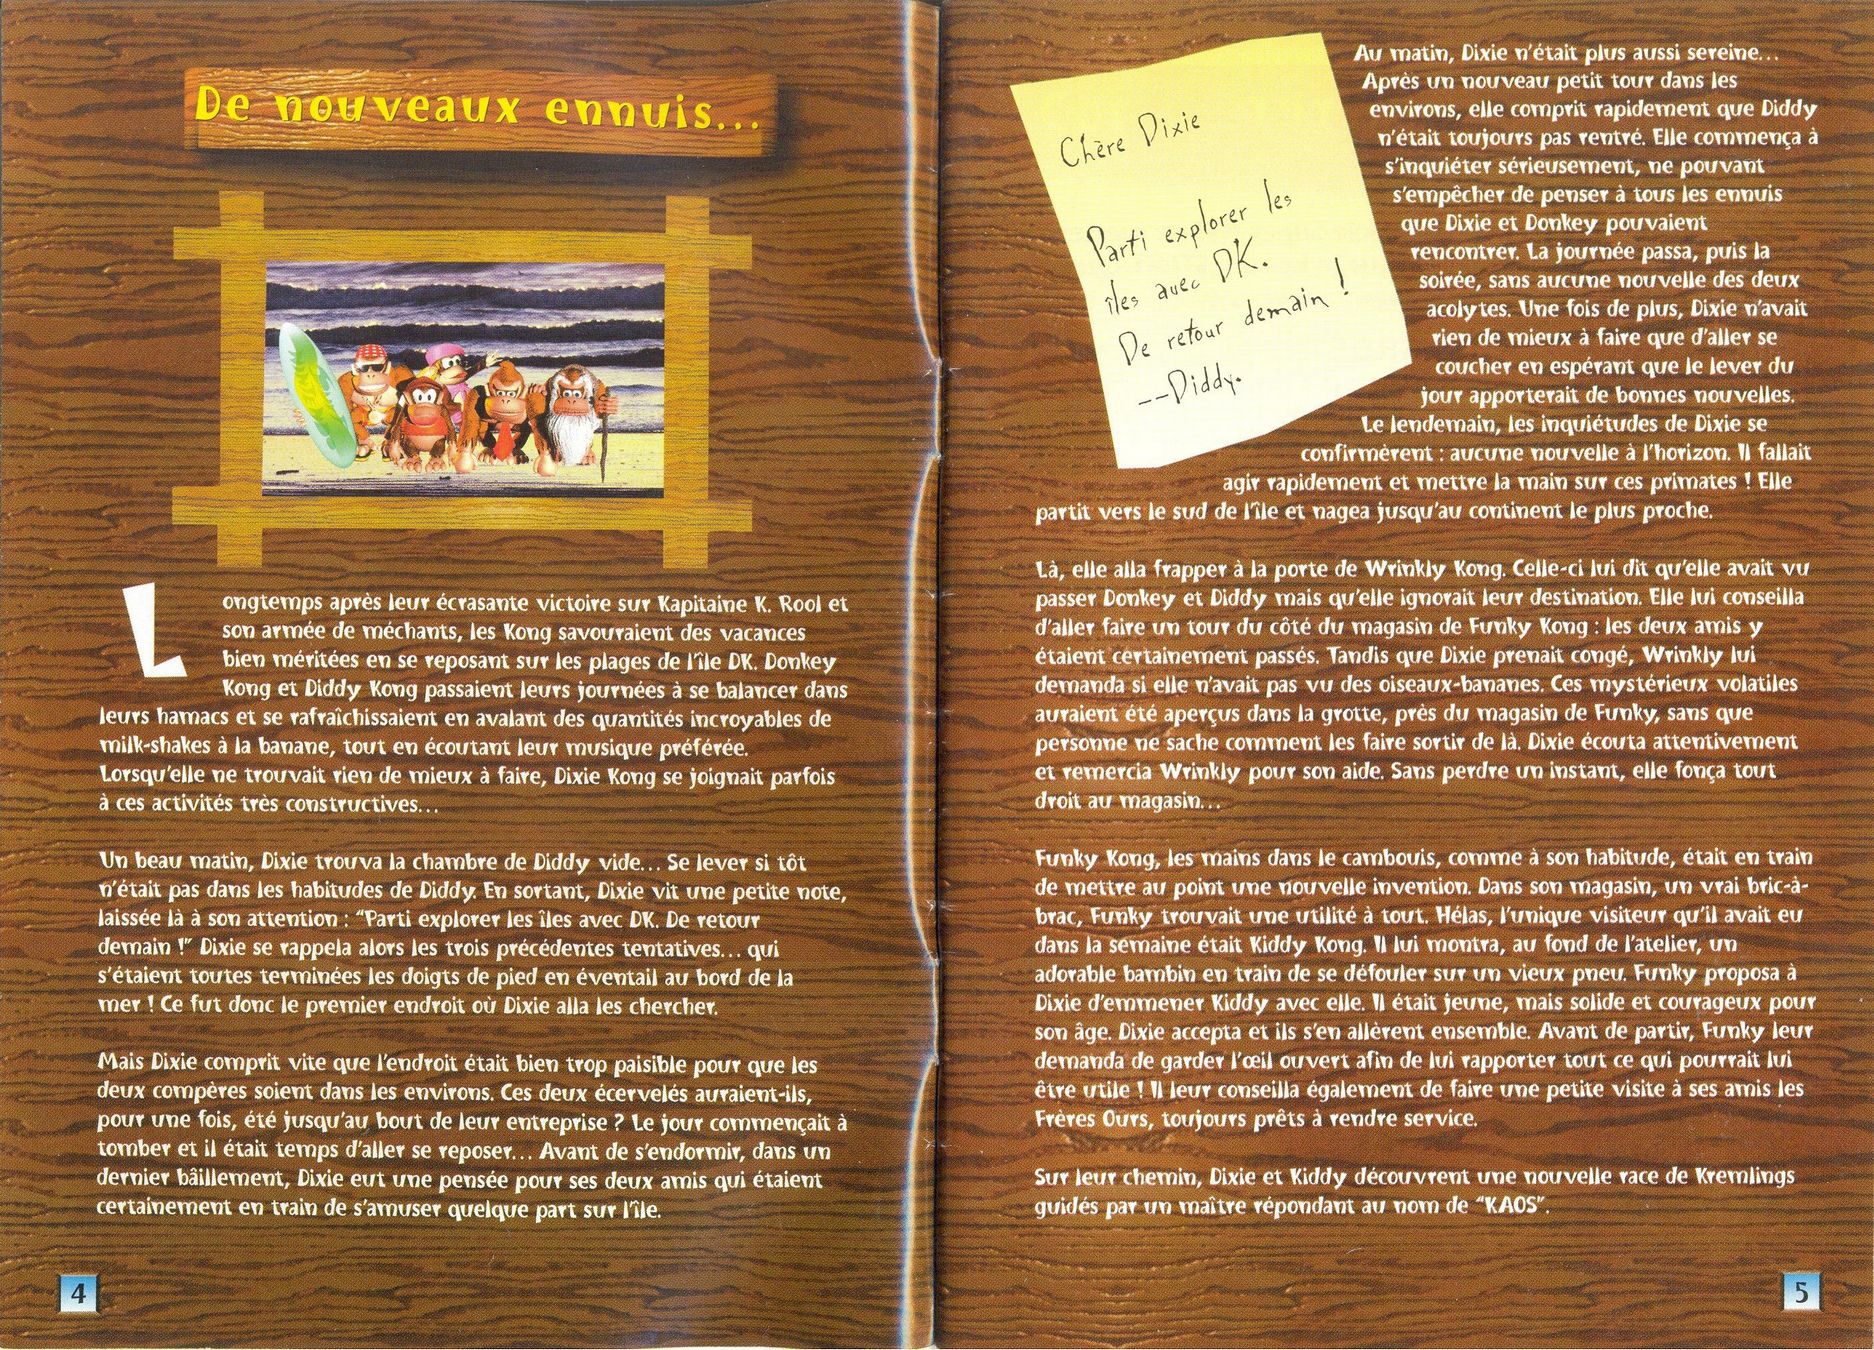 De nouveaux ennuis...
Longtemps après leur écrasante victoire sur Kapitaine K. Rool et
son armée de méchants, les Kong savouraient des vacances
bien méritées en se reposant sur les plages de l'île DK. Donkey
Kong et Diddy Kong passaient leurs journées à se balancer dans
leurs hamacs et se rafraîchissaient en avalant des quantités incroyables de
milk-shakes à la banane, tout en écoutant leur musique préférée.
Lorsqu'elle ne trouvait rien de mieux à faire, Dixie Kong se joignait parfois
à ces activités très constructives...
Un beau matin, Dixie trouva la chambre de Diddy vide... Se lever si tôt
n'était pas dans les habitudes de Diddy. En sortant, Dixie vit une petite note,
laissée là à son attention : "Parti explorer les îles avec DK. De retour
demain !" Dixie se rappela alors les trois précédentes tentatives... qui
s'étaient toutes terminées les doigts de pied en éventail au bord de la
mer ! Ce fut donc le premier endroit où Dixie alla les chercher.
Mais Dixie comprit vite que l'endroit était bien trop paisible pour que les
deux compères soient dans les environs. Ces deux écervelés auraient-ils,
pour une fois, été jusqu'au bout de leur entreprise ? Le jour commençait à
tomber et il était temps d'aller se reposer... Avant de s'endormir, dans un
dernier bâillement, Dixie eut une pensée pour ses deux amis qui étaient
certainement en train de s'amuser quelque part sur l'île.
4
Chère Dixie
Parti explorer les
îles avec DK.
De retour demain !
--Diddy.
Au matin, Dixie n'était plus aussi sereine...
Après un nouveau petit tour dans les
environs, elle comprit rapidement que Diddy
n'était toujours pas rentré. Elle commença à
s'inquiéter sérieusement, ne pouvant
s'empêcher de penser à tous les ennuis
que Dixie et Donkey pouvaient
rencontrer. La journée passa, puis la
soirée, sans aucune nouvelle des deux
acolytes. Une fois de plus, Dixie n'avait
rien de mieux à faire que d'aller se
coucher en espérant que le lever du
jour apporterait de bonnes nouvelles.
Le lendemain, les inquiétudes de Dixie se
confirmèrent : aucune nouvelle à l'horizon. Il fallait
agir rapidement et mettre la main sur ces primates ! Elle
partit vers le sud de l'île et nagea jusqu'au continent le plus proche.
Là, elle alla frapper à la porte de Wrinkly Kong. Celle-ci lui dit qu'elle avait vu
passer Donkey et Diddy mais qu'elle ignorait leur destination. Elle lui conseilla
d'aller faire un tour du côté du magasin de Funky Kong : les deux amis y
étaient certainement passés. Tandis que Dixie prenait congé, Wrinkly lui
demanda si elle n'avait pas vu des oiseaux-bananes. Ces mystérieux volatiles
auraient été aperçus dans la grotte, près du magasin de Funky, sans que
personne ne sache comment les faire sortir de là. Dixie écouta attentivement
et remercia Wrinkly pour son aide. Sans perdre un instant, elle fonça tout
droit au magasin...
Funky Kong, les mains dans le cambouis, comme à son habitude, était en train
de mettre au point une nouvelle invention. Dans son magasin, un vrai bric-à-
brac, Funky trouvait une utilité à tout. Hélas, l'unique visiteur qu'il avait eu
dans la semaine était Kiddy Kong. Il lui montra, au fond de l'atelier, un
adorable bambin en train de se défouler sur un vieux pneu. Funky proposa à
Dixie d'emmener Kiddy avec elle. Il était jeune, mais solide et courageux pour
son âge. Dixie accepta et ils s'en allèrent ensemble. Avant de partir, Funky leur
demanda de garder l'œil ouvert afin de lui rapporter tout ce qui pourrait lui
être utile ! Il leur conseilla également de faire une petite visite à ses amis les
Frères Ours, toujours prêts à rendre service.
Sur leur chemin, Dixie et Kiddy découvrent une nouvelle race de Kremlings
guidés par un maître répondant au nom de "KAOS".
5